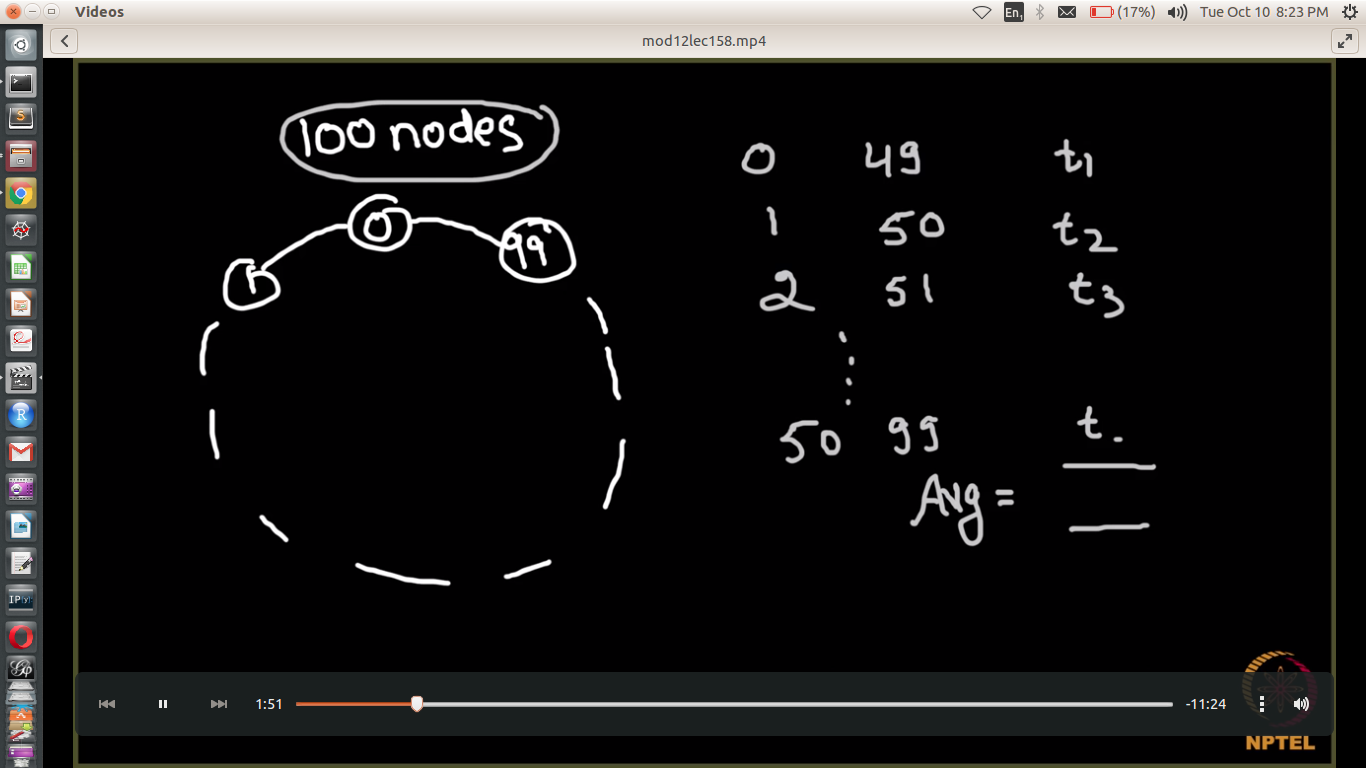 Videos
En1
(17%)
Tue Oct 10 8:23 PM
mod12lec158.mp4
100 nodes
0
1
99
0 49 t1
1 50 t2
2 51 t3
50 99 t.
Avg =
1:51
-11:24
NPTEL